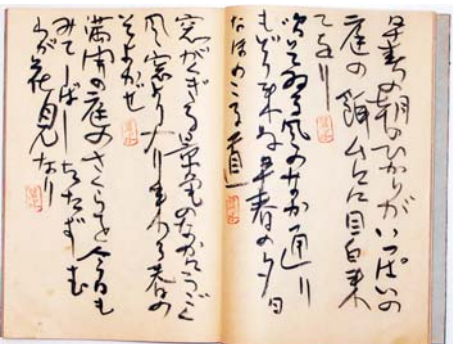 早春の朝のひかりがいっぱいの
庭の餌台に目白来
てをり
吹いてゐる風のなか通り
もどり来ぬ早春の夕日
なほのこる道
窓がくぎる景色のなかうごく
風窓より入り来る春の
そよかぜ
満開の庭のさくらを今日も
みてしばしもたたずむ
わが花見なり